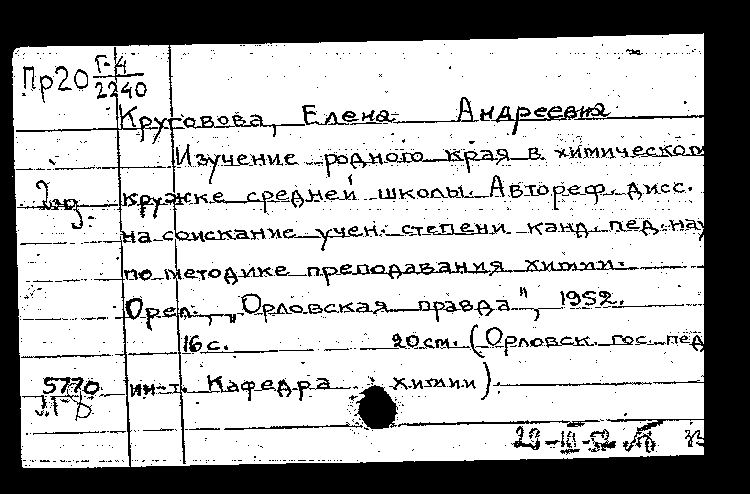 Пр20 Г-4
2240
Круговова, Елена Андреевна
Изучение родного края в химическом
2 эд. кружке средней школы. Автореф. дисс.
на соискание учен. степени канд. пед. нау
по методике преподавания химии.
Орел, „Орловская правда", 1952.
16 с. 20 см. (Орловск. гос. пед
5770 ин-т. Кафедра химии).
28-III-52